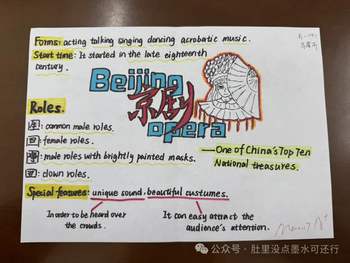 Forms: acting talking singing dancing acrobatic music.
Start time: It started in the late eighteenth
century.
Beijing
京剧
opera
Roles.
生: common male roles.
旦: female roles.
净: male roles with brightly painted masks.
丑: clown roles.
—One of China's Top Ten
National treasures.
Special features: unique sound. beautiful custumes.
In order to be heard over
the crowds.
It can easy attract the
audience's attention.
公众号 · 肚里没点墨水可还行